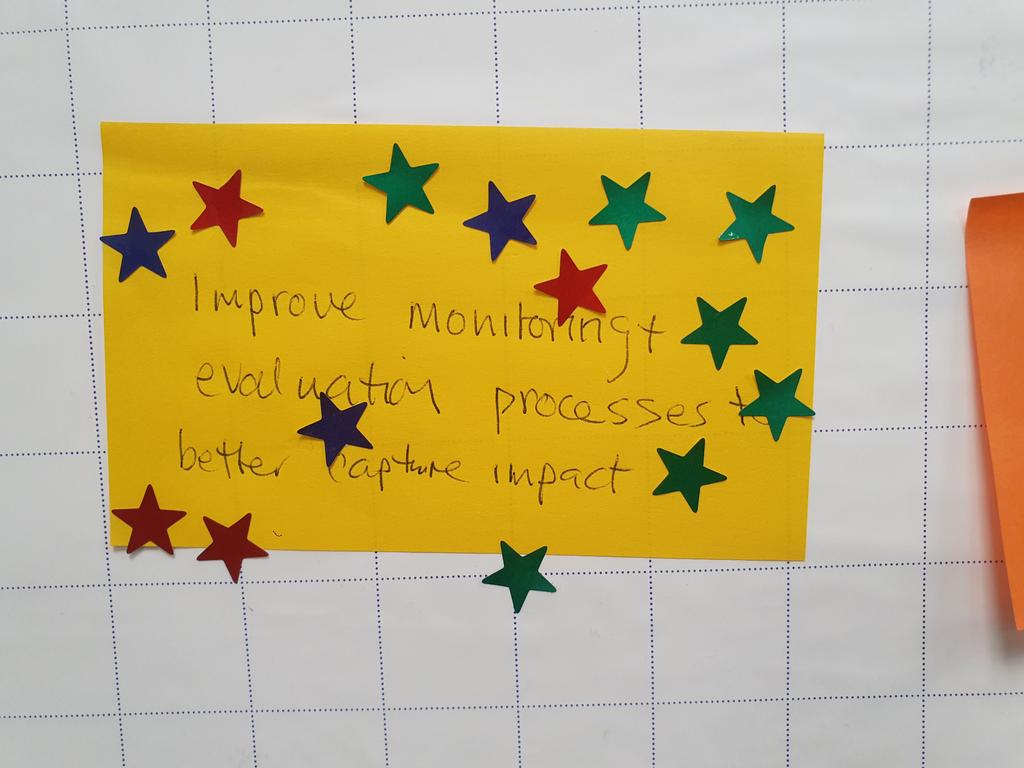 Improve monitoring +
evaluation processes to
better capture impact